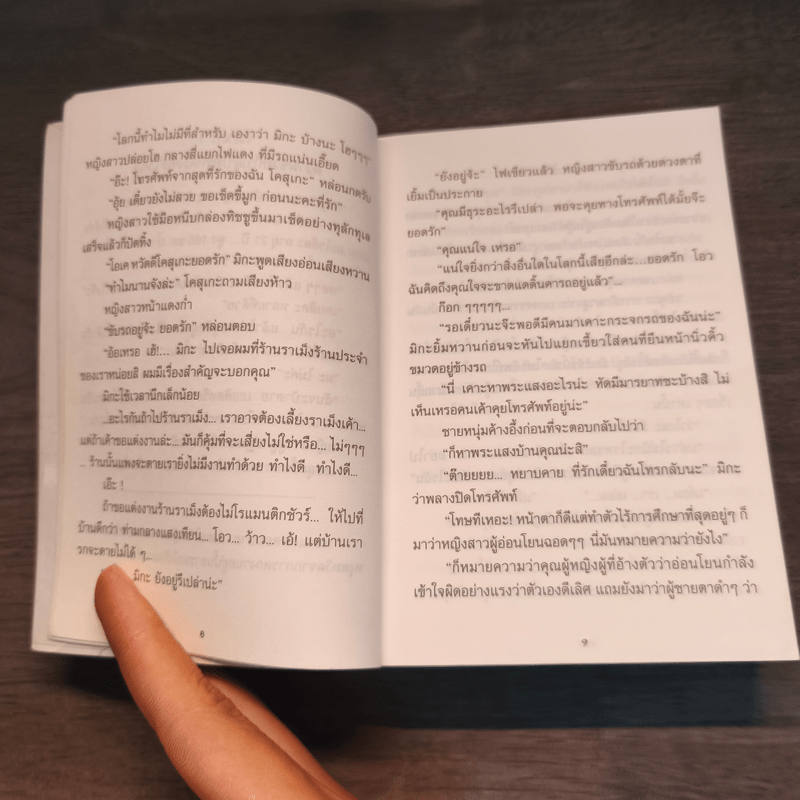 “โลกนี้ทำไมไม่มีที่สำหรับ เองาว่า มิกะ บ้างนะ โฮๆๆๆ”
หญิงสาวปล่อยโฮ กลางสี่แยกไฟแดง ที่มีรถแน่นเอี้ยด
“อ๊ะ! โทรศัพท์จากสุดที่รักของฉัน โคสุเกะ” หล่อนกดรับ
“อุ้ย เดี๋ยวยังไม่สวย ขอเช็ดขี้มูก ก่อนนะคะที่รัก”
หญิงสาวใช้มือหนีบกล่องทิชชูขึ้นมาเช็ดอย่างทุลักทุเล
เสร็จแล้วก็ปัดทิ้ง
“ไอเค หวัดดีโคสุเกะยอดรัก” มิกะพูดเสียงอ่อนเสียงหวาน
“ทำไมนานจังล่ะ” โคสุเกะถามเสียงห้าว
หญิงสาวหน้าแดงก่ำ
“ขับรถอยู่จ๊ะ ยอดรัก” หล่อนตอบ
“อ้อเหรอ เฮ้!... มิกะ ไปเจอผมที่ร้านราเม็งร้านประจำ
ของเราหน่อยสิ ผมมีเรื่องสำคัญจะบอกคุณ”
มิกะใช้เวลานึกเล็กน้อย
...อะไรกันถ้าไปร้านราเม็ง... เราอาจต้องเลี้ยงราเม็งเค้า...
แต่ถ้าเค้าขอแต่งงานล่ะ... มันก็คุ้มที่จะเสี่ยงไม่ใช่หรือ... ไม่ๆๆๆ
... ร้านนั้นแพงจะตายเรายิ่งไม่มีงานทำด้วย ทำไงดี ทำไงดี...
เอ๊ะ !
ถ้าขอแต่งงานร้านราเม็งต้องไม่โรแมนติกชัวร์... ให้ไปที่
บ้านดีกว่า ท่ามกลางแสงเทียน... โอว... ว้าว... เอ้! แต่บ้านเรา
รกจะตายไม่ได้ ๆ...
มิกะ ยังอยู่รึเปล่าน่ะ”
6
“ยังอยู่จ้ะ” ไฟเขียวแล้ว หญิงสาวขับรถด้วยดวงตาที่
เยิ้มเป็นประกาย
“คุณมีธุระอะไรรึเปล่า พอจะคุยทางโทรศัพท์ได้มั้ยจ๊ะ
ยอดรัก”
“คุณแน่ใจ เหรอ”
“แน่ใจยิ่งกว่าสิ่งอื่นใดในโลกนี้เสียอีกล่ะ...ยอดรัก โอว
ฉันคิดถึงคุณใจจะขาดแดดิ้นคารถอยู่แล้ว”...
ก๊อก ๆๆๆๆๆ...
“รอเดี๋ยวนะจ๊ะพอดีมีคนมาเคาะกระจกรถของฉันน่ะ”
มิกะยิ้มหวานก่อนจะหันไปแยกเขี้ยวใส่คนที่ยืนหน้านิ่วคิ้ว
ขมวดอยู่ข้างรถ
“นี่ เคาะหาพระแสงอะไรน่ะ หัดมีมารยาทซะบ้างสิ ไม่
เห็นเหรอคนเค้าคุยโทรศัพท์อยู่น่ะ”
ชายหนุ่มค้างอึ้งก่อนที่จะตอบกลับไปว่า
“ก็หาพระแสงบ้านคุณน่ะสิ”
“ต๊ายยยย... หยาบคาย ที่รักเดี๋ยวฉันโทรกลับนะ” มิกะ
ว่าพลางปิดโทรศัพท์
“โทษทีเหอะ! หน้าตาก็ดีแต่ทำตัวไร้การศึกษาที่สุดอยู่ๆ ก็
มาว่าหญิงสาวผู้อ่อนโยนฉอดๆๆ นี่มันหมายความว่ายังไง”
“ก็หมายความว่าคุณผู้หญิงผู้ที่อ้างตัวว่าอ่อนโยนกำลัง
เข้าใจผิดอย่างแรงว่าตัวเองดีเลิศ แถมยังมาว่าผู้ชายตาดำๆ ว่า